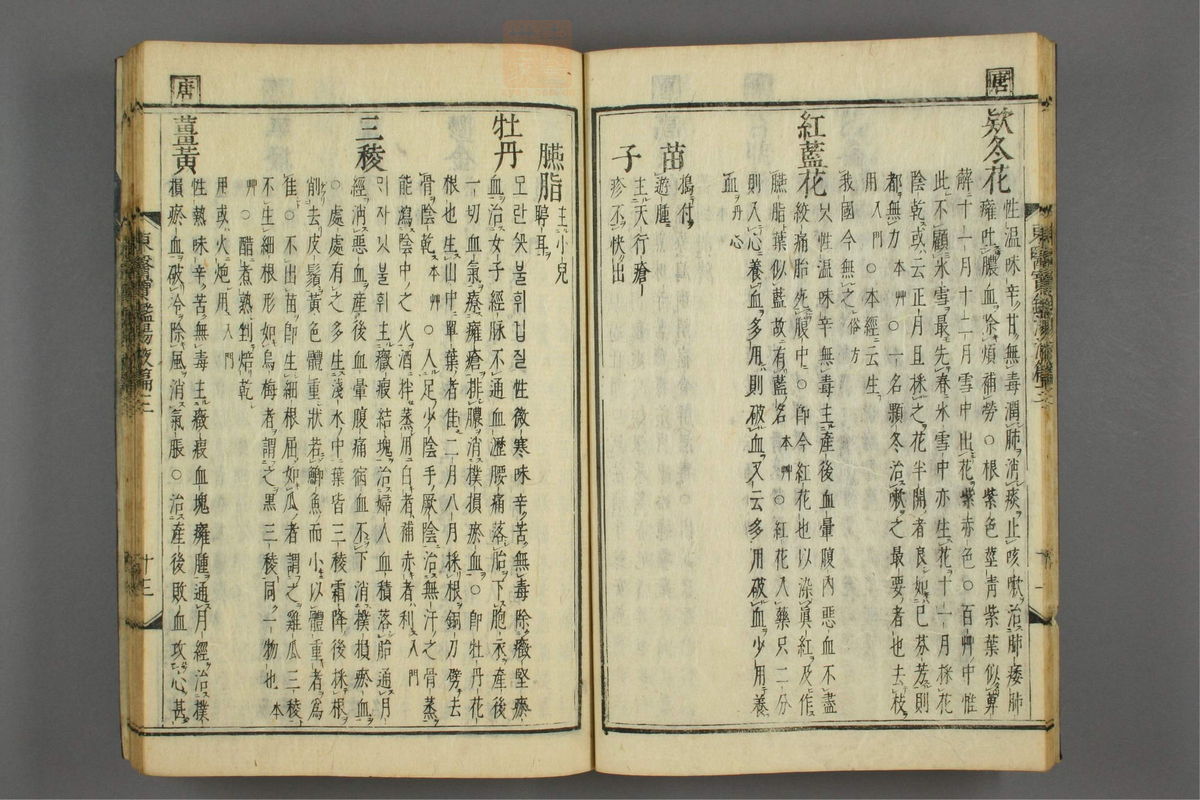 唐
欵冬花
性溫味辛甘無毒潤肺消痰止咳嗽治肺痿肺
癰吐膿血除煩補勞○根紫色莖靑紫葉似萆
薢十一月十二月雪中出花紫赤色○百艸中惟
此不顧氷雪最先春氷雪中亦生花十一月採花
陰乾或云正月旦採之花半開者良如已芬芳則
都無力本艸○一名顆冬治嗽之最要者也去枝
用入門○本經云生
我國今無之俗方
紅藍花
닛性溫味辛無毒主產後血暈腹內惡血不盡
絞痛胎死腹中○卽今紅花也以染眞紅及作
臙脂葉似藍故有藍名本艸○紅花入藥只二分
則入心養血多用則破血又云多用破血少用養
血丹心
苗
搗付
遊腫
子
主天行瘡
疹不快出
臙脂
主小兒
聤耳
牡丹
모란ᄭᅩᆺ불휘겁질性微寒味辛苦無毒除癥堅瘀
血治女子經脉不通血瀝腰痛落胎下胞衣產後
一切血氣療癰瘡排膿消撲損瘀血○卽牡丹花
根也生山中單葉者佳二月八月採根銅刀劈去
骨陰乾本艸○入足少陰手厥陰治無汗之骨蒸
能瀉陰中之火酒拌蒸用白者補赤者利入門
三稜
ᄆᆡ자깃불휘主癥瘕結塊治婦人血積落胎通月
經消惡血產後血暈腹痛宿血不下消撲損瘀血
○處處有之多生淺水中葉皆三稜霜降後採根
削去皮鬚黃色體重狀若鯽魚而小以體重者爲
佳○不出苗卽生細根屈如瓜者謂之雞瓜三稜
不生細根形如烏梅者謂之黑三稜同一物也本
艸○醋煮熟剉焙乾
用或火炮用入門
薑黃
性熱味辛苦無毒主癥瘕血塊癰腫通月經治撲
損瘀血破冷除風消氣脹○治產後敗血攻心甚
唐
東醫寶鑑湯液篇